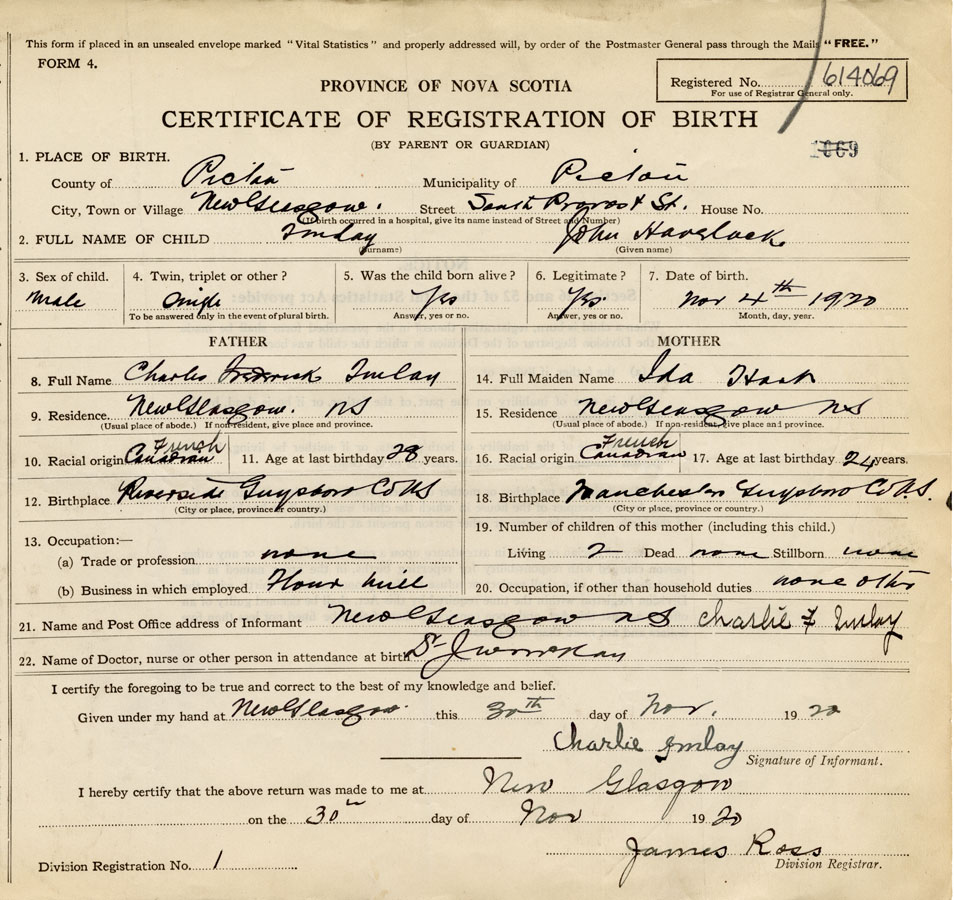 This form if placed in an unsealed envelope marked "Vital Statistics" and properly addressed will, by order of the Postmaster General pass through the Mails "FREE."
FORM 4.
PROVINCE OF NOVA SCOTIA
Registered No. 614069
For use of Registrar General only.
CERTIFICATE OF REGISTRATION OF BIRTH
(BY PARENT OR GUARDIAN)
1069
1. PLACE OF BIRTH.
County of Pictou Municipality of Pictou
City, Town or Village New Glasgow. Street South Provost St. House No.
(If birth occurred in a hospital, give its name instead of Street and Number)
2. FULL NAME OF CHILD Imlay John Havelock
(Surname) (Given name)
3. Sex of child. 4. Twin, triplet or other? 5. Was the child born alive? 6. Legitimate? 7. Date of birth.
Male Single Yes Yes. Nov 4th 1920
To be answered only in the event of plural birth. Answer, yes or no. Answer, yes or no. Month, day, year.
FATHER MOTHER
8. Full Name Charles Frederick Imlay 14. Full Maiden Name Ida
9. Residence. New Glasgow. NS 15. Residence New Glasgow NS
(Usual place of abode.) If non-resident, give place and province. (Usual place of abode.) If non-resident, give place and province.
French French
10. Racial origin Canadian 11. Age at last birthday 28 years. 16. Racial origin Canadian 17. Age at last birthday 24 years.
12. Birthplace Riverside Guysboro Co NS 18. Birthplace Manchester Guysboro Co N.S.
(City or place, province or country.) (City or place, province or country.)
19. Number of children of this mother (including this child.)
13. Occupation:—
(a) Trade or profession none Living 2 Dead none Stillborn none
(b) Business in which employed Flour mill 20. Occupation, if other than household duties none other
21. Name and Post Office address of Informant New Glasgow NS Charlie F Imlay
22. Name of Doctor, nurse or other person in attendance at birth Dr
I certify the foregoing to be true and correct to the best of my knowledge and belief.
Given under my hand at New Glasgow this 30th day of Nov. 19 20
Charlie Imlay
Signature of Informant.
I hereby certify that the above return was made to me at New Glasgow
on the 30th day of Nov 19 20
James Ross
Division Registration No. 1 Division Registrar.